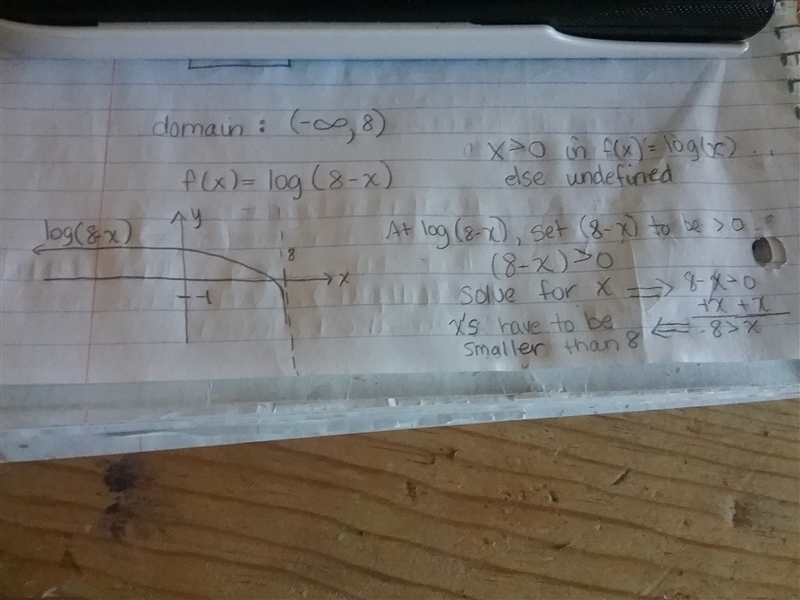 domain: (-∞, 8)
f(x) = log(8-x)
x>0 in f(x) = log(x)
else undefined
log(8-x)
y
8
x
-1
At log(8-x), set (8-x) to be >0
(8-x)>0
solve for x ⟹ 8-x>0
+x +x
8>x
x's have to be ⟸
smaller than 8